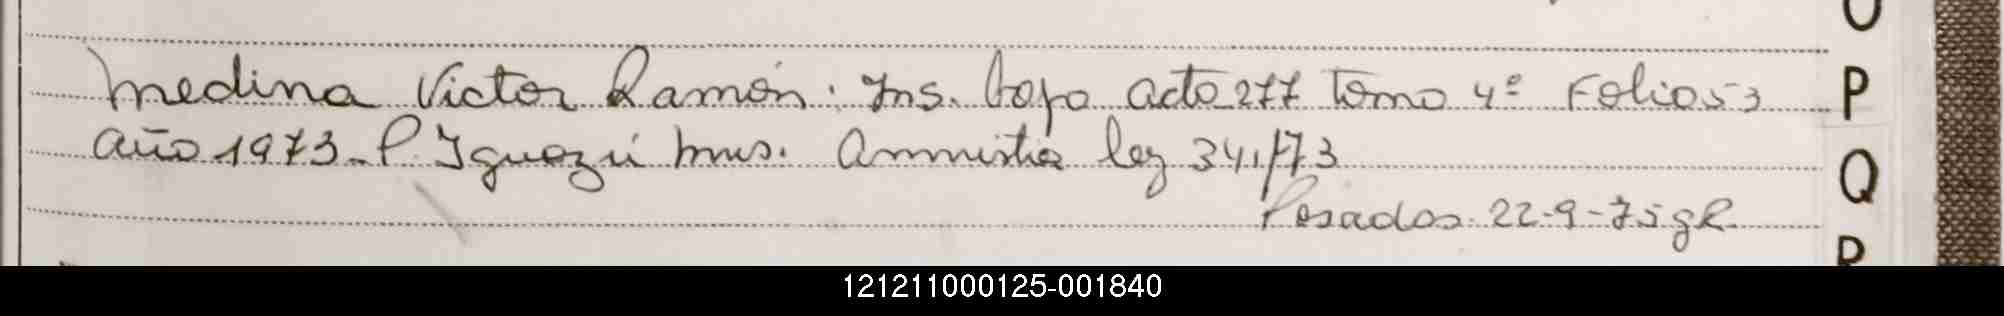 Medina Victor Ramón. Ins. bajo acta 277 Tomo 4º Folio 53
año 1973. P. Iguazú mns. Amnistia ley 341/73
Posadas. 22-9-75 gR.
O
P
Q
R
121211000125-001840